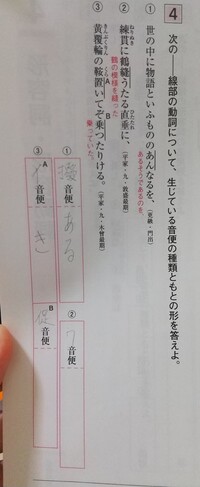 4 次の――線部の動詞について、生じている音便の種類ともとの形を答えよ。
① 世の中に物語といふもののあんなるを、(更級・門出)
あるそうであるのを、
② 練貫に鶴縫うたる直垂に、(平家・九・敦盛最期)
ねりぬき
ひたたれ
鶴の模様を縫った
③ 黄覆輪の鞍置いてぞ乗つたりける。(平家・九・木曾最期)
きんぷくりん
くら
A
B
乗っていた。
① 撥音便 ある
② ウ音便
③ A イ音便 き
B 促音便